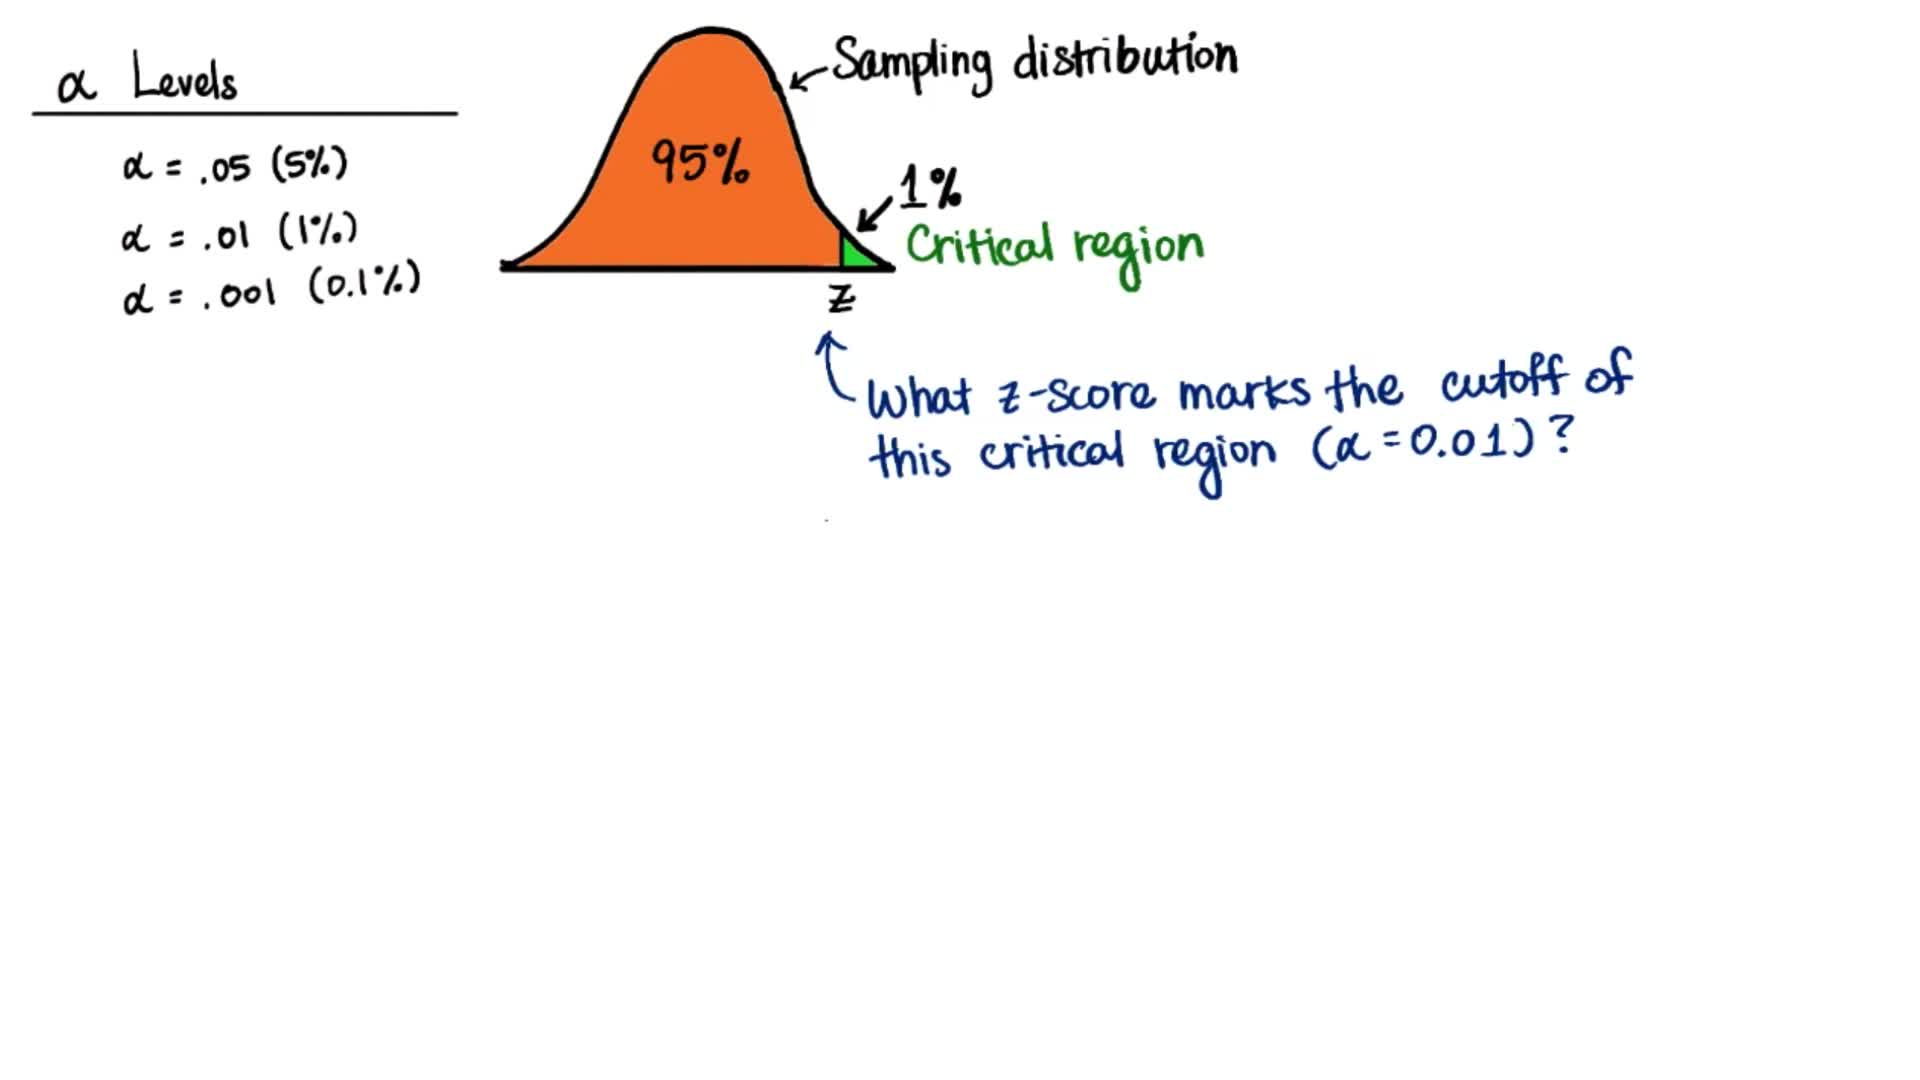 α Levels
α = .05 (5%)
α = .01 (1%)
α = .001 (0.1%)
Sampling distribution
95%
1%
Critical region
z
What z-score marks the cutoff of
this critical region (α = 0.01)?